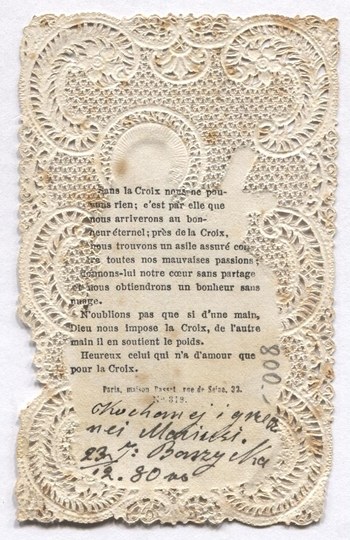 Sans la Croix nous ne pou-
vons rien; c'est par elle que
nous arriverons au bon-
heur éternel; près de la Croix,
nous trouvons un asile assuré con-
tre toutes nos mauvaises passions;
donnons-lui notre cœur sans partage
et nous obtiendrons un bonheur sans
nuage.
N'oublions pas que si d'une main,
Dieu nous impose la Croix, de l'autre
main il en soutient le poids.
Heureux celui qui n'a d'amour que
pour la Croix.
Paris, maison Basset, rue de Seine, 33.
No. 819.
008
Kochanej i
nej
23/12. 80